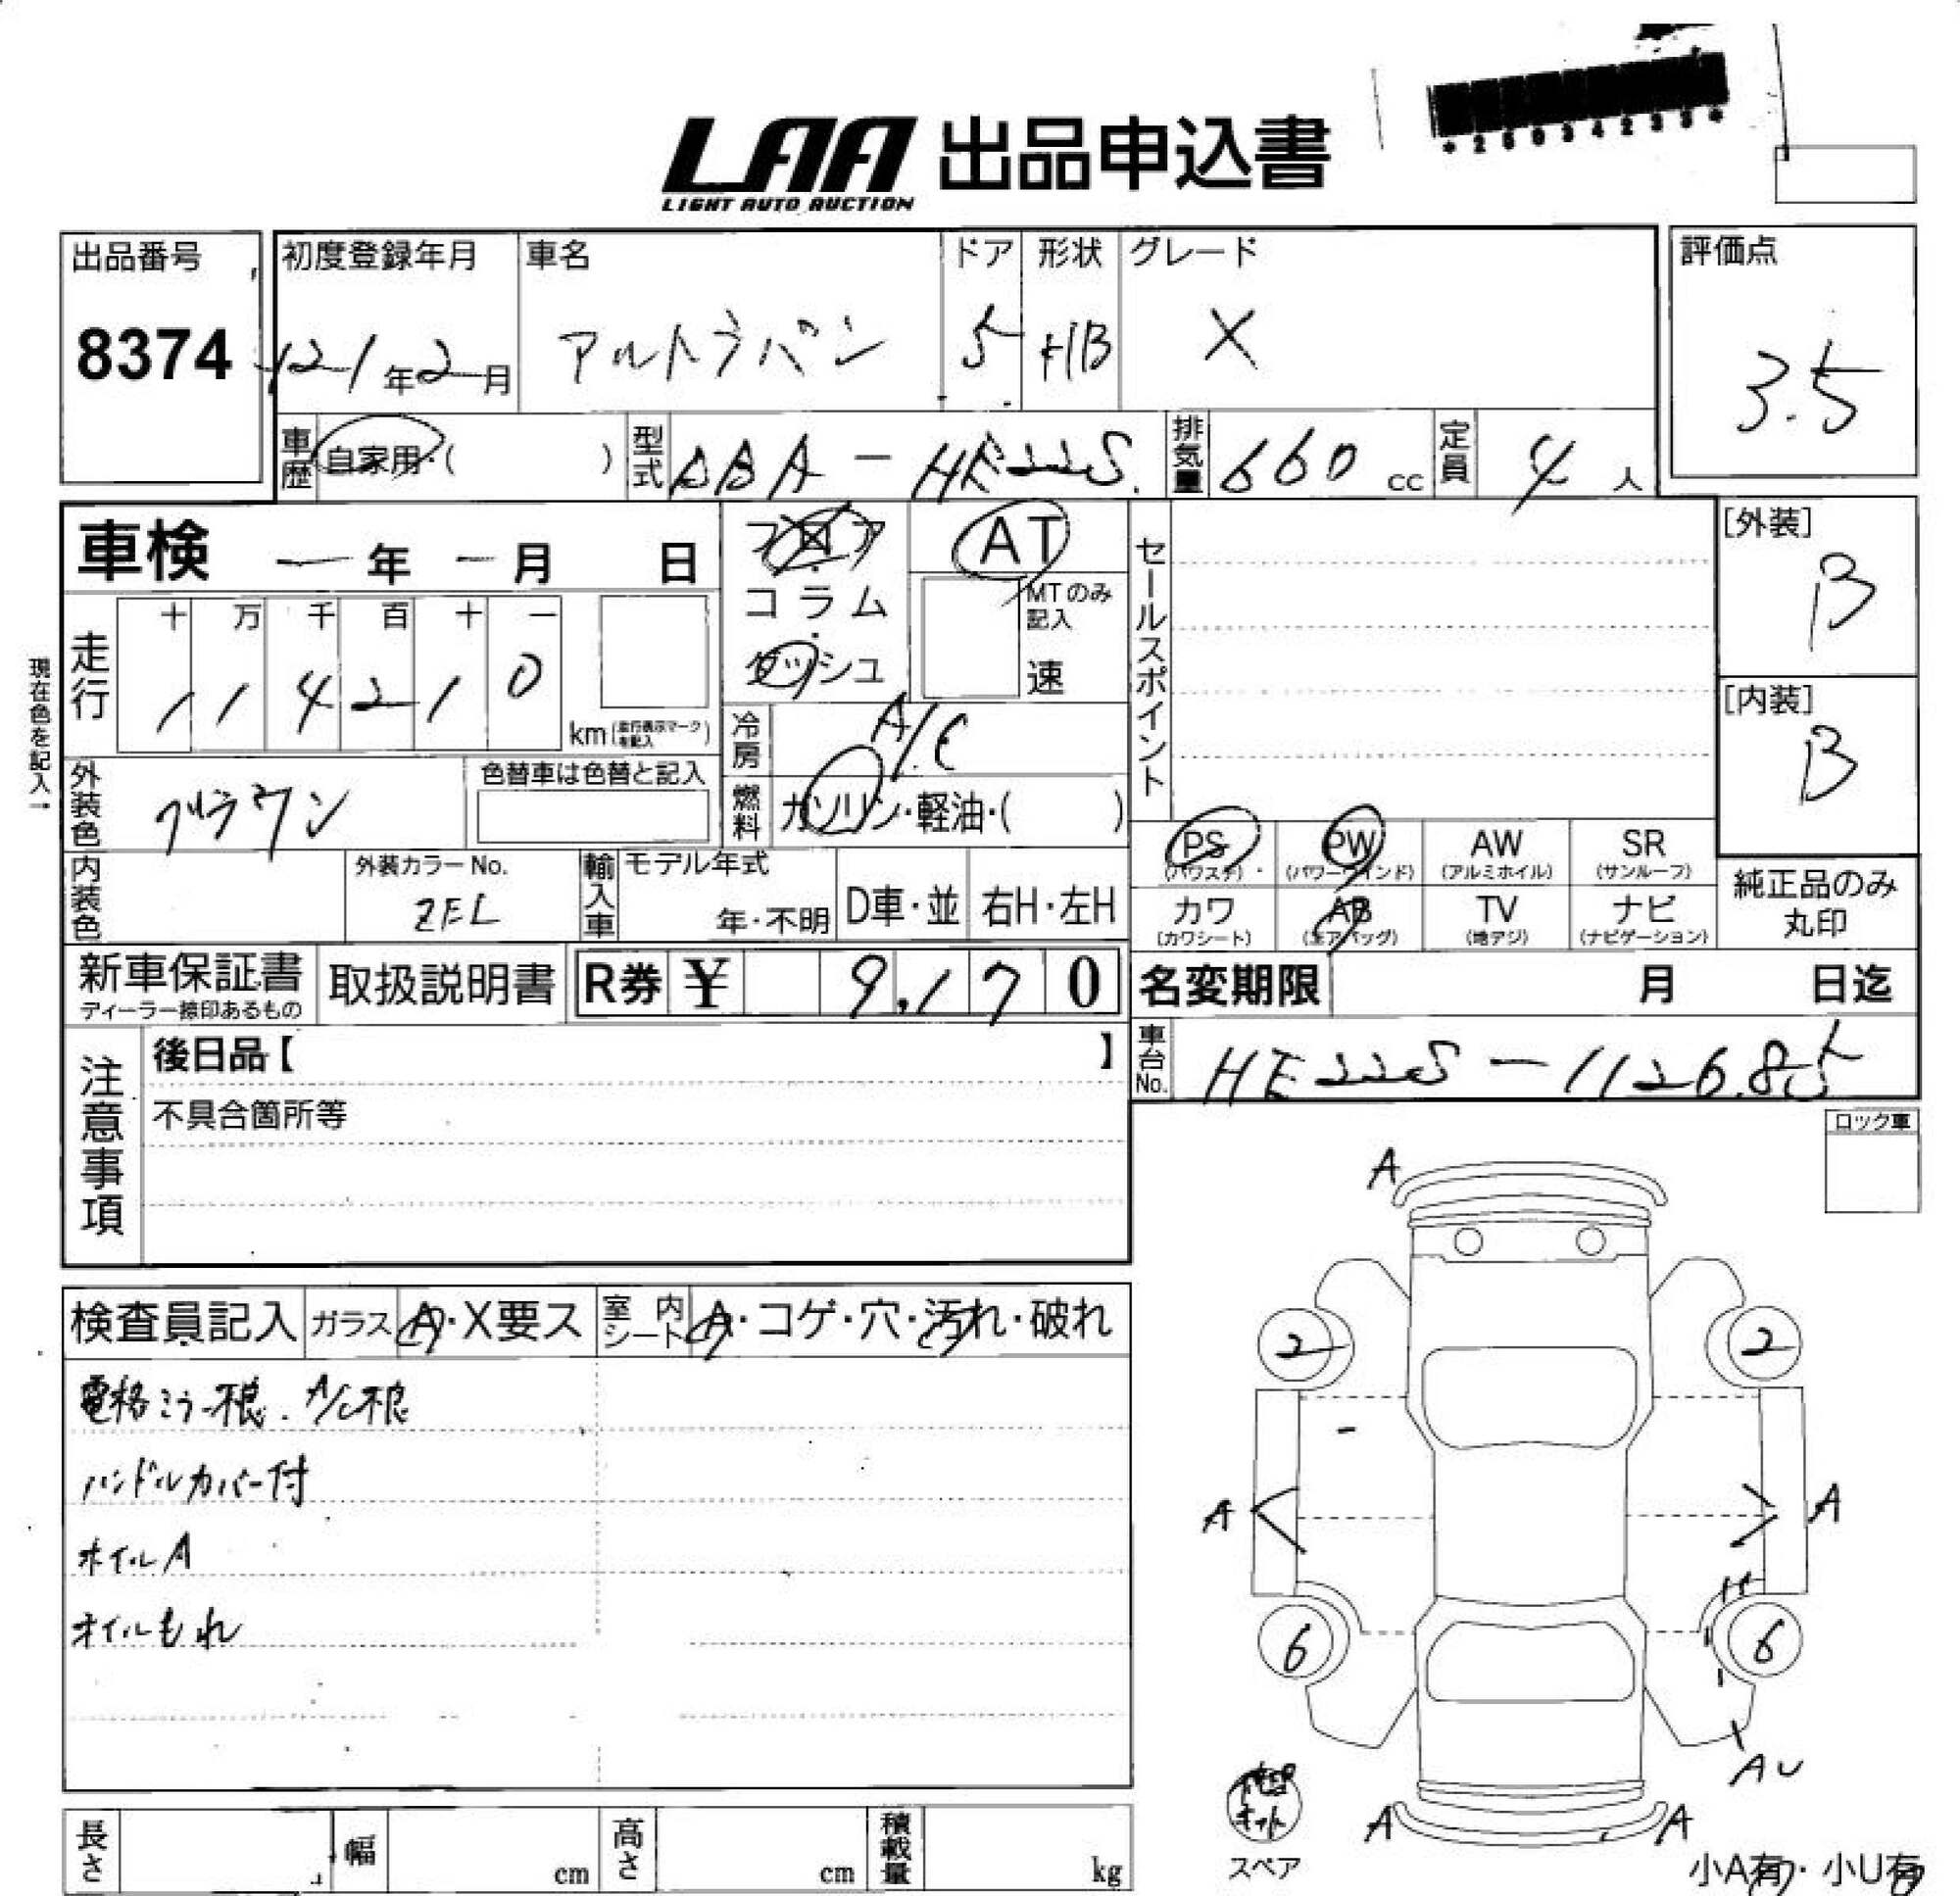 *26034235*
LAA 出品申込書
LIGHT AUTO AUCTION
出品番号
8374
初度登録年月
21年2月
車名
アルトラパン
ドア
5
形状
HB
グレード
X
評価点
3.5
車歴
自家用・( )
型式
DBA-HE22S
排気量
660 cc
定員
4 人
車検 ー 年 ー 月 日
フロア
コラム
ダッシュ
AT
MTのみ記入
速
セールスポイント
[外装]
B
[内装]
B
現在色を記入→
走行
十 万 千 百 十 一
1 1 4 2 1 0
km(走行表示マークを記入)
冷房
A/C
燃料
ガソリン・軽油・( )
外装色
ブラウン
色替車は色替と記入
内装色
外装カラーNo.
ZEL
輸入車
モデル年式
年・不明
D車・並
右H・左H
PS
(パワステ)
PW
(パワーウインド)
AW
(アルミホイル)
SR
(サンルーフ)
カワ
(カワシート)
AB
(エアバッグ)
TV
(地デジ)
ナビ
(ナビゲーション)
純正品のみ
丸印
新車保証書
ディーラー捺印あるもの
取扱説明書
R券 ¥ 9,170
名変期限 月 日迄
車台No.
HE22S-112685
注意事項
後日品【 】
不具合箇所等
ロック車
検査員記入
ガラス A・X要ス
室内シート A・コゲ・穴・汚れ・破れ
電格ミラー不良. A/C不良
ハンドルカバー付
ホイルA
オイルもれ
A
2
2
A
A
6
6
AU
A
A
キット
スペア
小A有・小U有
長さ
幅 cm
高さ cm
積載量 kg